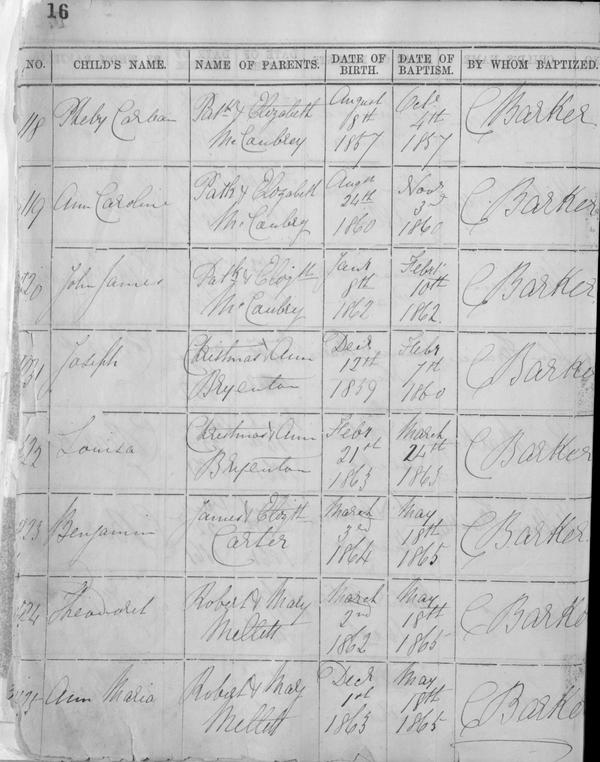 16
NO. CHILD'S NAME. NAME OF PARENTS. DATE OF BIRTH. DATE OF BAPTISM. BY WHOM BAPTIZED.
118 Pheby Patk & Elizabeth August Octr C Barker
McCaubrey 18th 4th
1857 1857
119 Ann Caroline Patk & Elizabeth Augst Novr C Barker
McCaubrey 24th 3rd
1860 1860
120 John James Patk & Elizth Jank Febr C Barker
McCaubrey 8th 10th
1862 1862
Joseph Christmas & Ann Decr Febr C Barker
Bryenton 12th 7th
1859 1860
122 Louisa Christmas & Ann Febr March C Barker
Bryenton 21st 24th
1863 1863
123 Benjamin James & Elizth March May C Barker
Carter 3rd 18th
1864 1865
124 Robert & Mary March May C Barker
Mellett 2nd 18th
1862 1865
Ann Maria Robert & Mary Decr May C Barker
Mellett 1st 18th
1863 1865